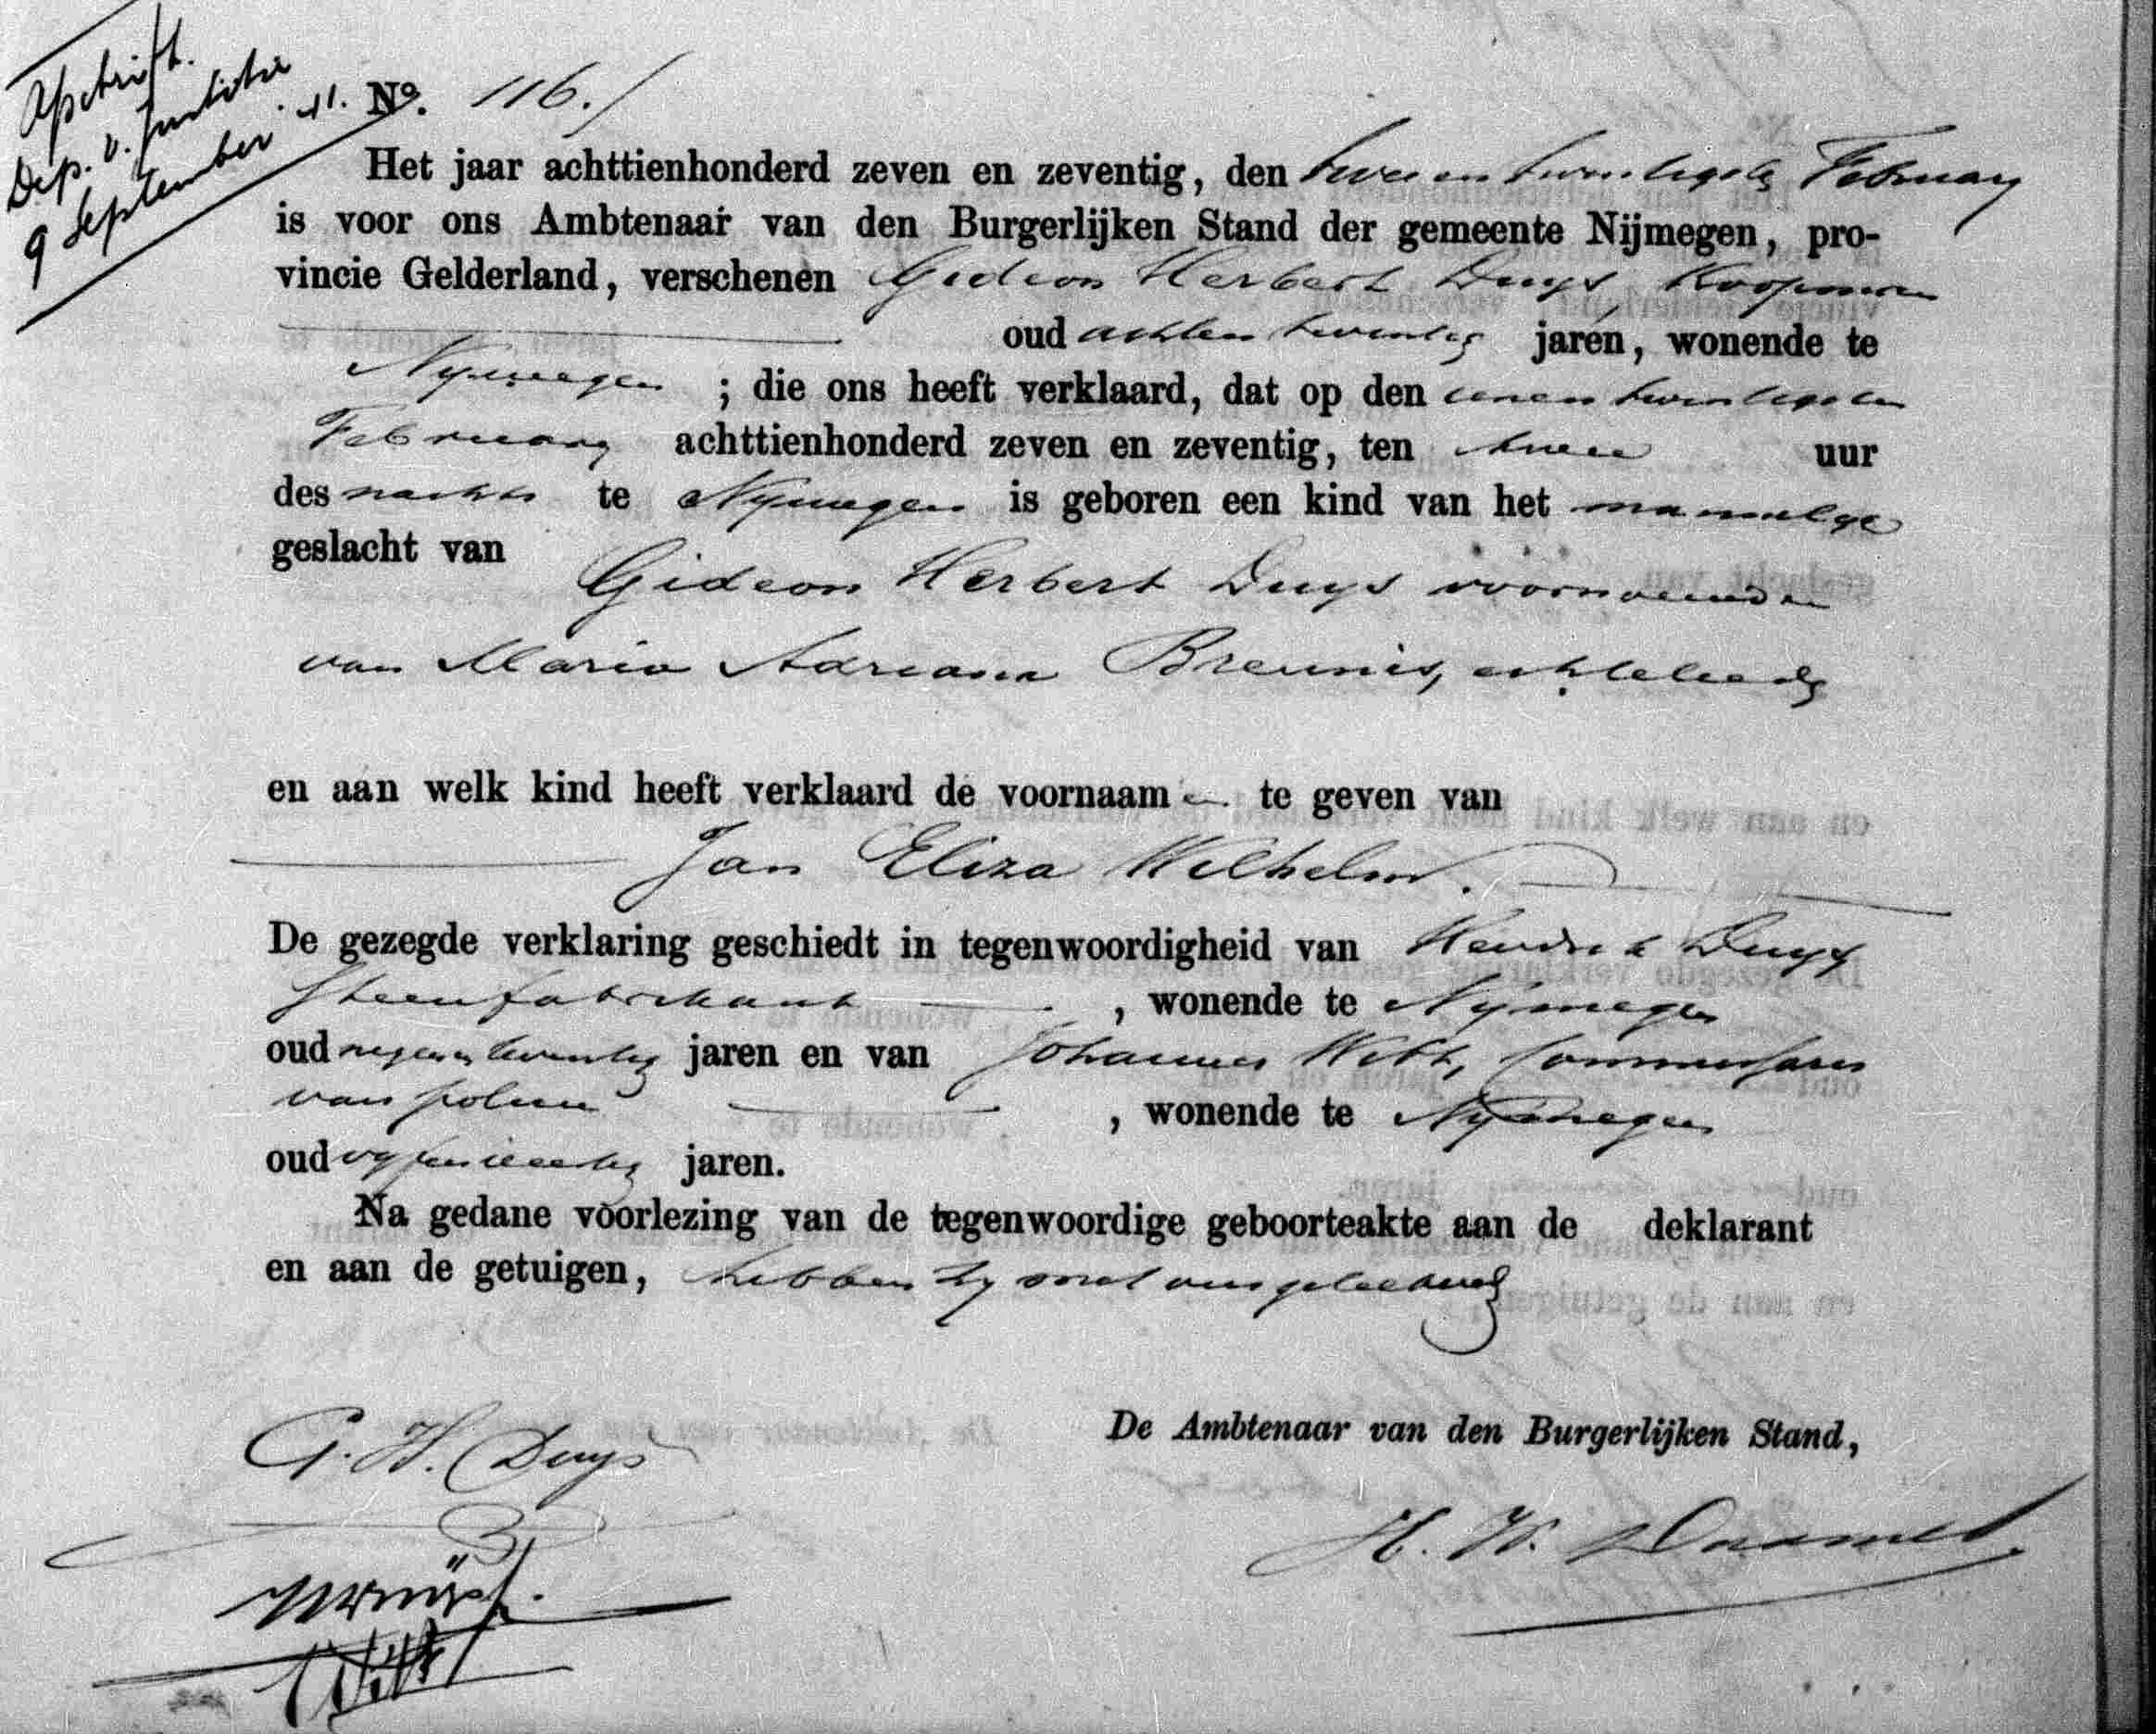 Afschrift.
Dep. v. Justitie
9 September '41.
No. 116.
Het jaar achttienhonderd zeven en zeventig, den twee en twintigste February
is voor ons Ambtenaar van den Burgerlijken Stand der gemeente Nijmegen, pro-
vincie Gelderland, verschenen Gideon Herbert Duys, Koopman
oud achten twintig jaren, wonende te
Nymegen ; die ons heeft verklaard, dat op den eenen twintigsten
February achttienhonderd zeven en zeventig, ten twee uur
des nachts te Nymegen is geboren een kind van het mannelyke
geslacht van
Gideon Herbert Duys voornoemd en
van Maria Adriana Breunis, echtelieden
en aan welk kind heeft verklaard de voornaamen te geven van
Jan Eliza Wilhelm.
De gezegde verklaring geschiedt in tegenwoordigheid van Hendrik Duys
Steenfabrikant , wonende te Nymegen
oud negenen twintig jaren en van Johannes Witt, Commissaris
van polisie , wonende te Nymegen
oud vyfen veertig jaren.
Na gedane voorlezing van de tegenwoordige geboorteakte aan de deklarant
en aan de getuigen, hebben zy met ons geteekend
G. H. Duys
De Ambtenaar van den Burgerlijken Stand,